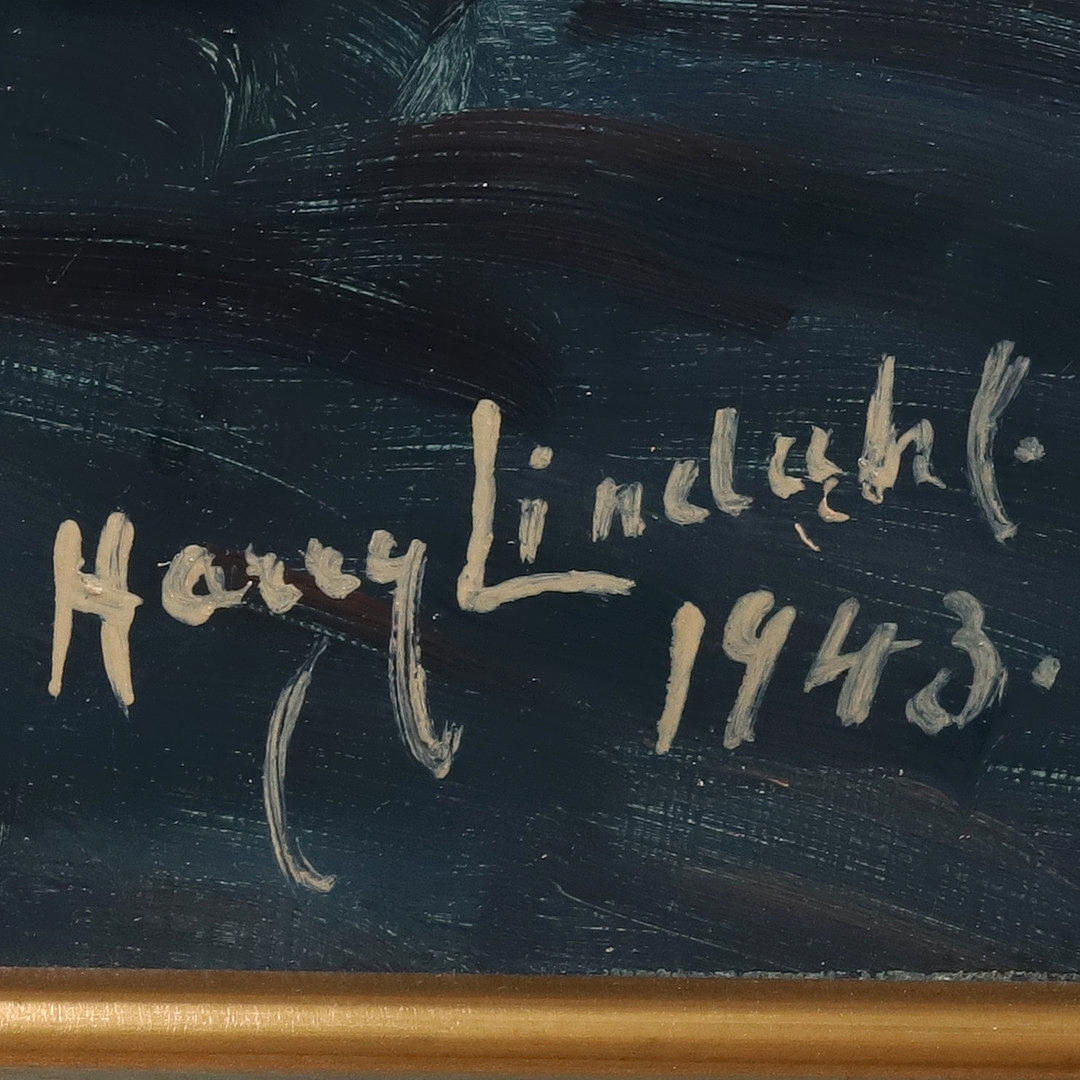 Harry Lindahl.
1943.